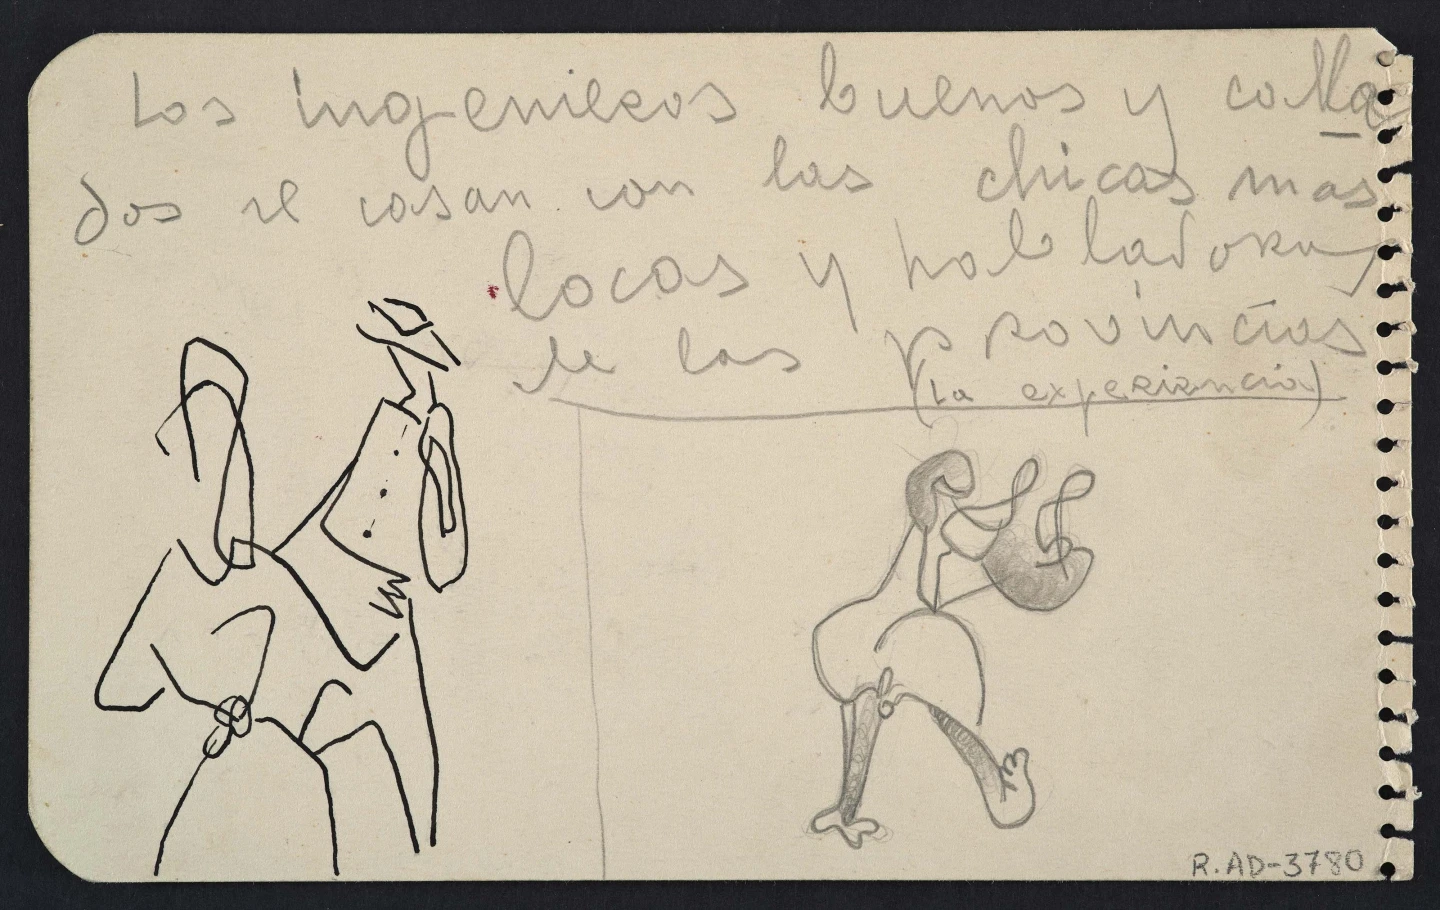 Los ingenieros buenos y calla
dos se casan con las chicas mas
locas y habladoras
de las provincias
(la experiencia)
R.AD-3780